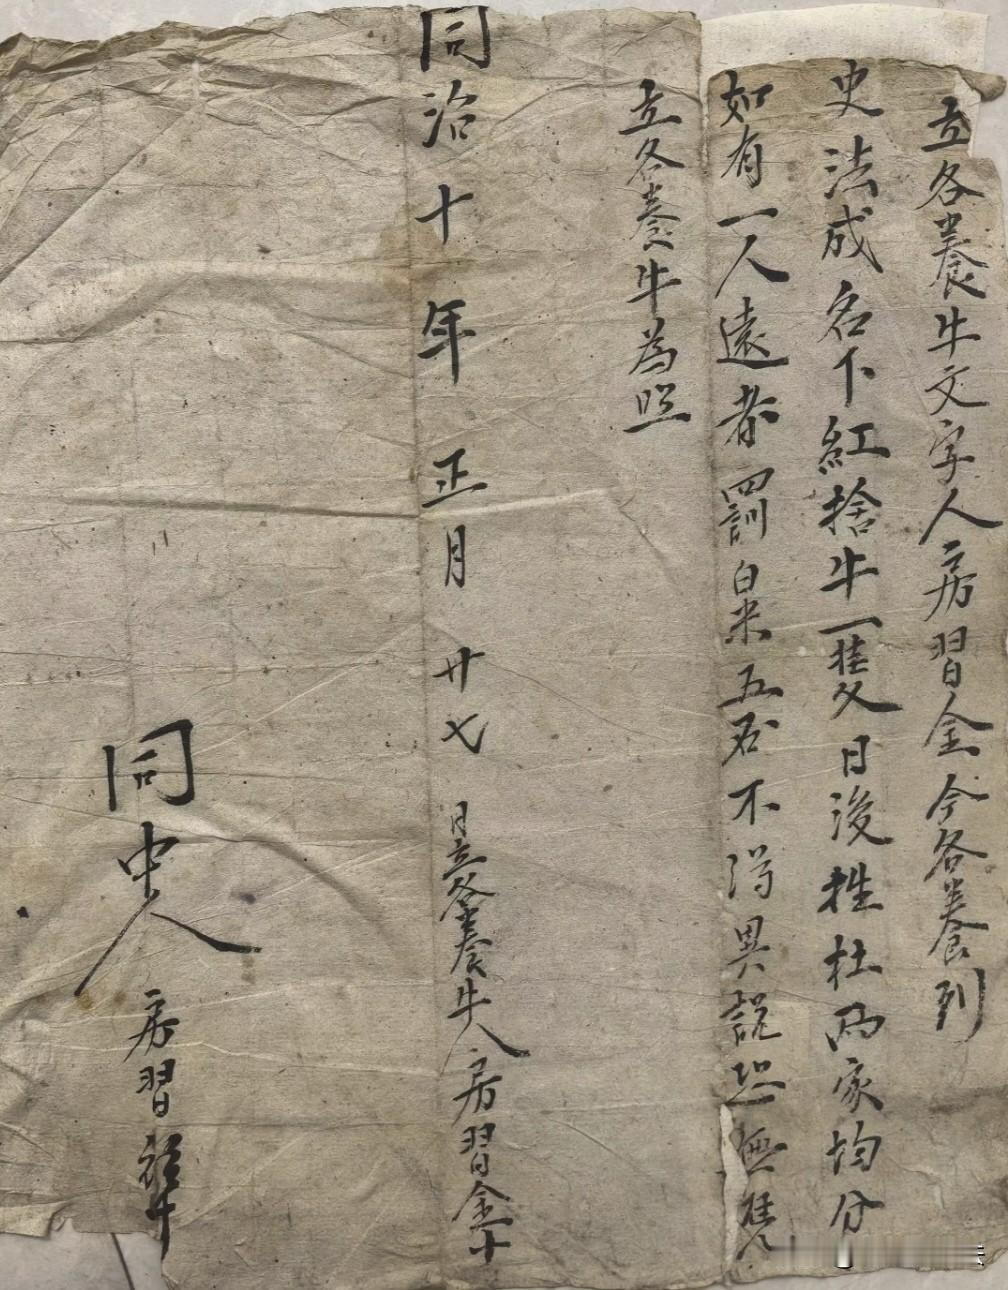 立各養牛文字人房習金今各養到
史法成名下紅捨牛一隻日後牲杜两家均分
如有一人遠者罰粟五石不淂異說恐無憑
立各養牛為照
同治十年正月廿七日立各養牛人房習金十
同中人房習 十